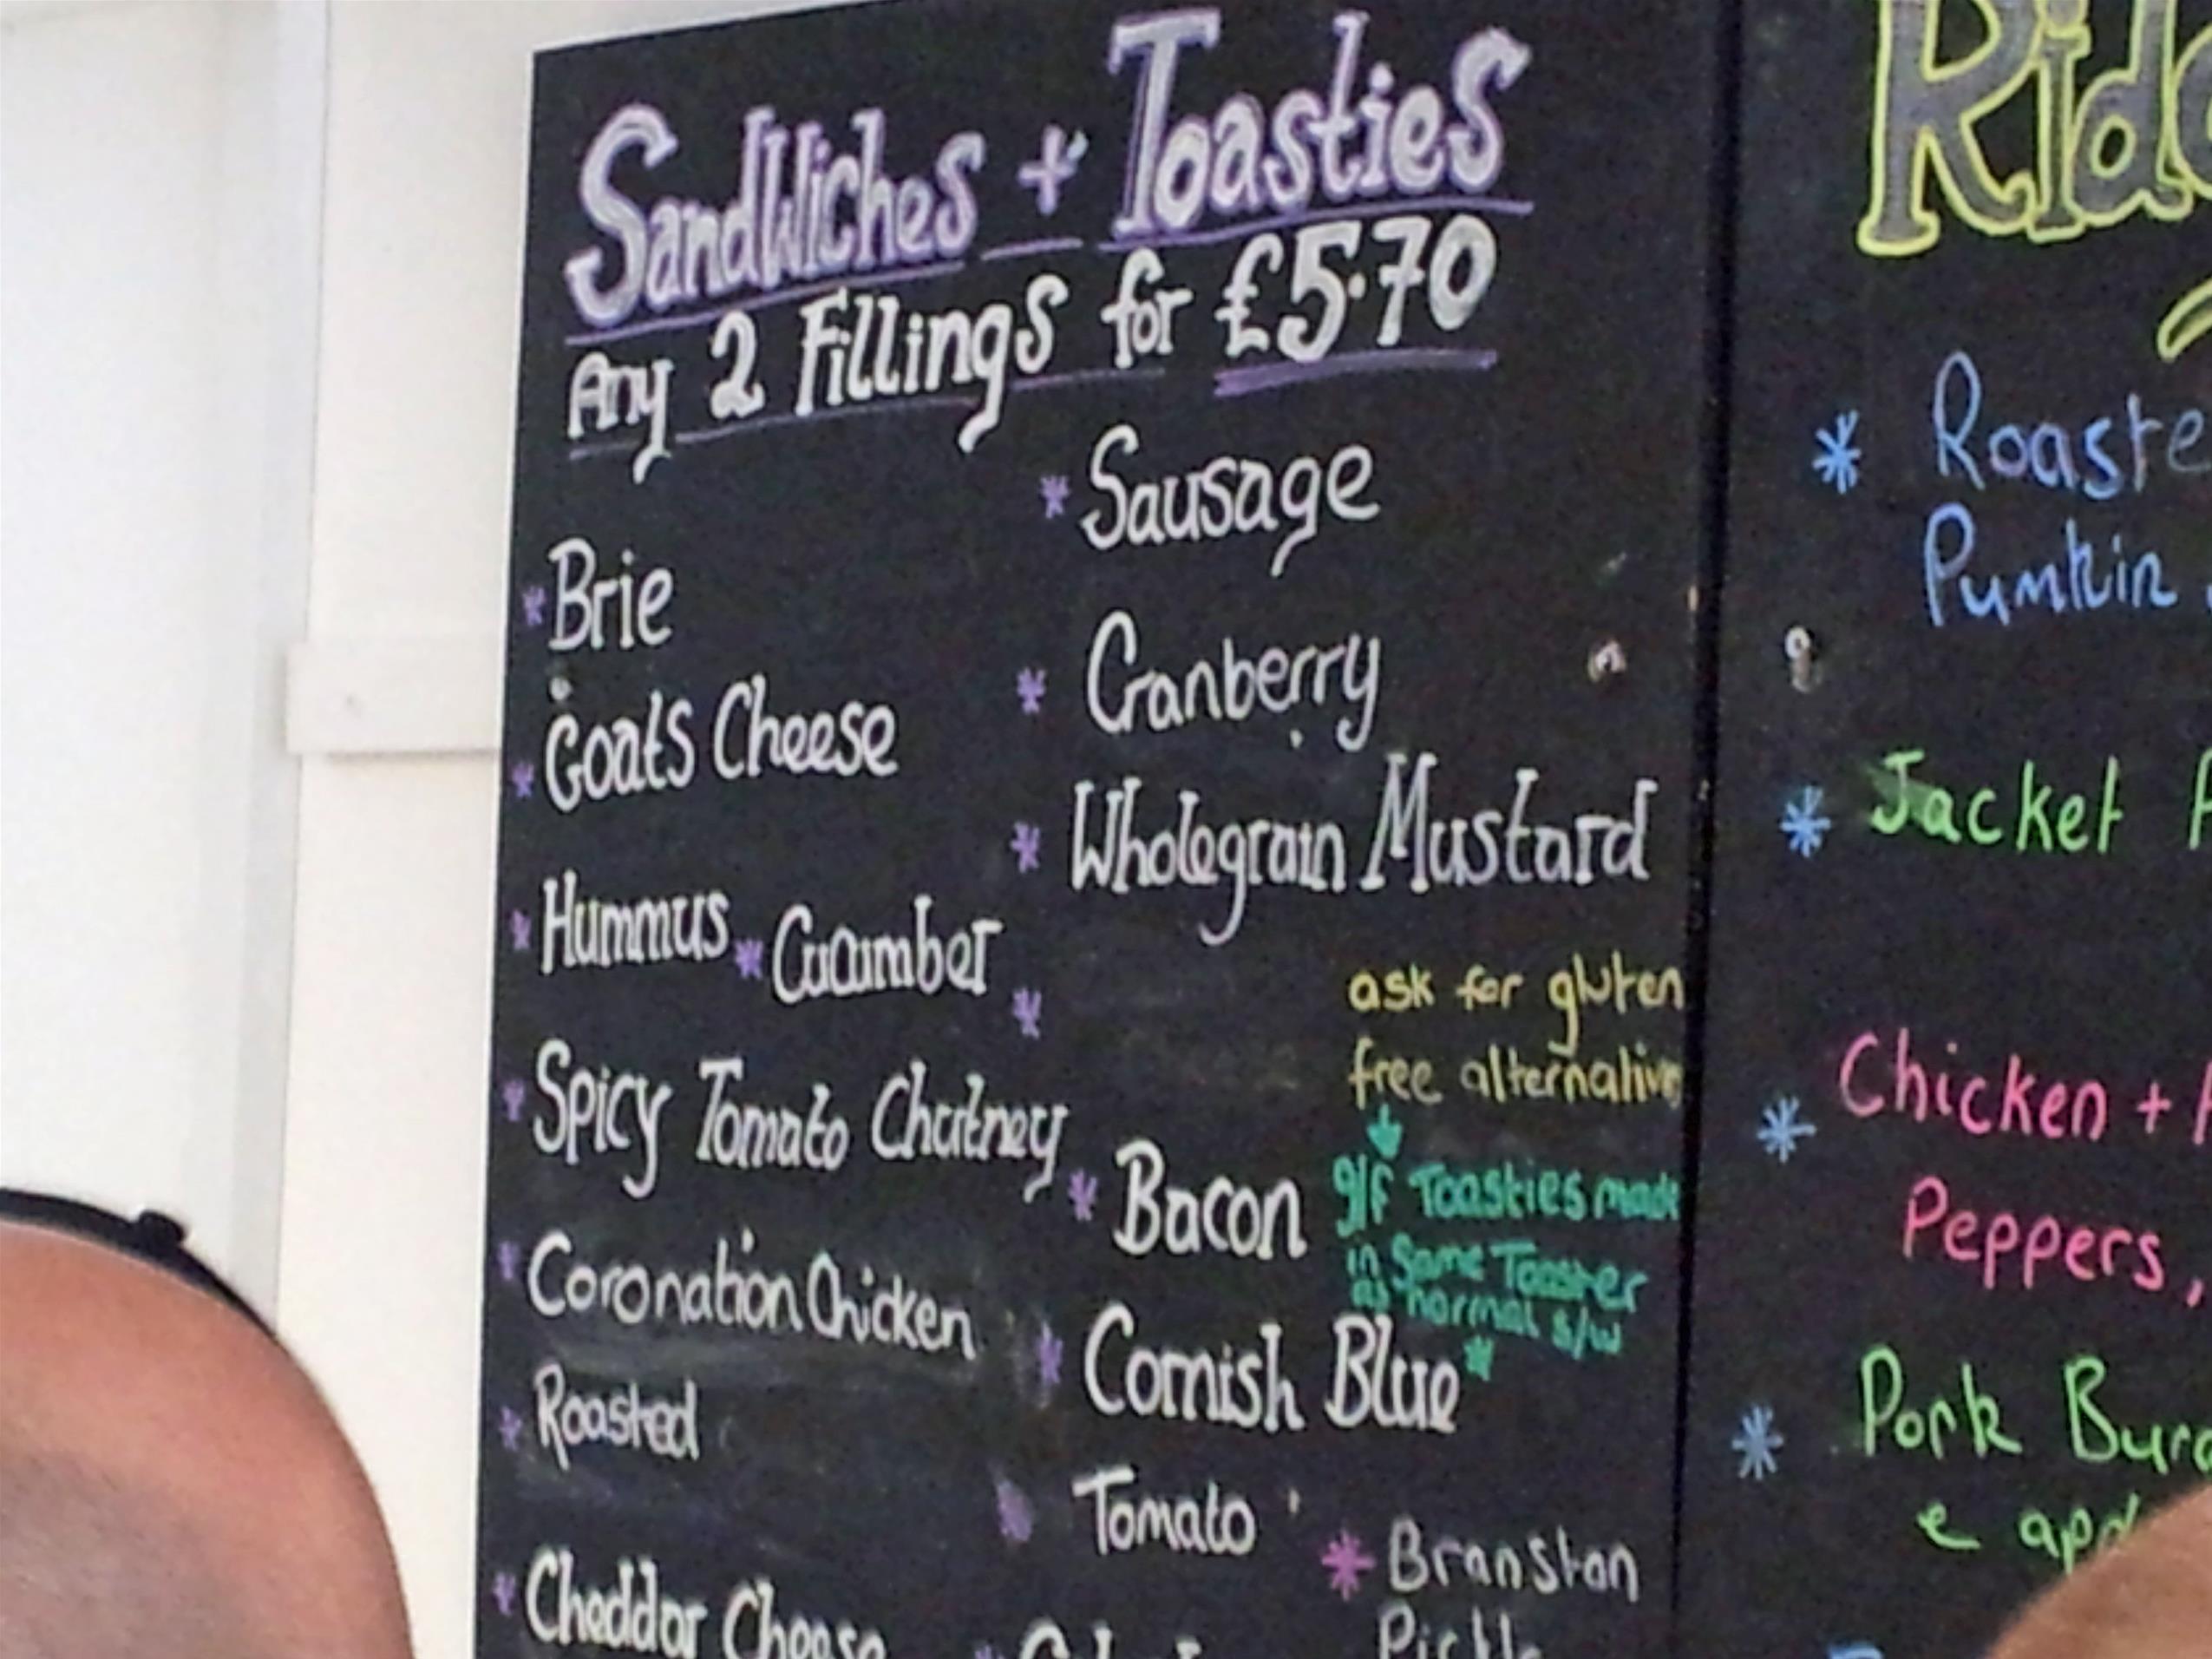 Sandwiches + Toasties
Any 2 Fillings for £5.70
* Sausage
* Brie
* Cranberry
* Goats Cheese
* Wholegrain Mustard
* Hummus * Cucumber
ask for gluten
free alternative
* Spicy Tomato Chutney
* Bacon
g/f Toasties made
in Same Toaster
as normal s/w
* Coronation Chicken
* Cornish Blue *
* Roasted
Tomato
* Branston
Pickle
* Cheddar Cheese
* Roaste
Pumkin
* Jacket
* Chicken +
Peppers,
* Pork Burg
e